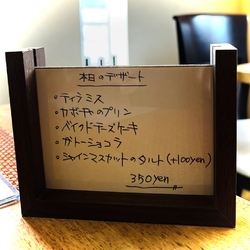 本日のデザート
○ティラミス
○カボチャのプリン
○ベイクドチーズケーキ
○ガトーショコラ
○シャインマスカットのタルト(+100yen)
350yen